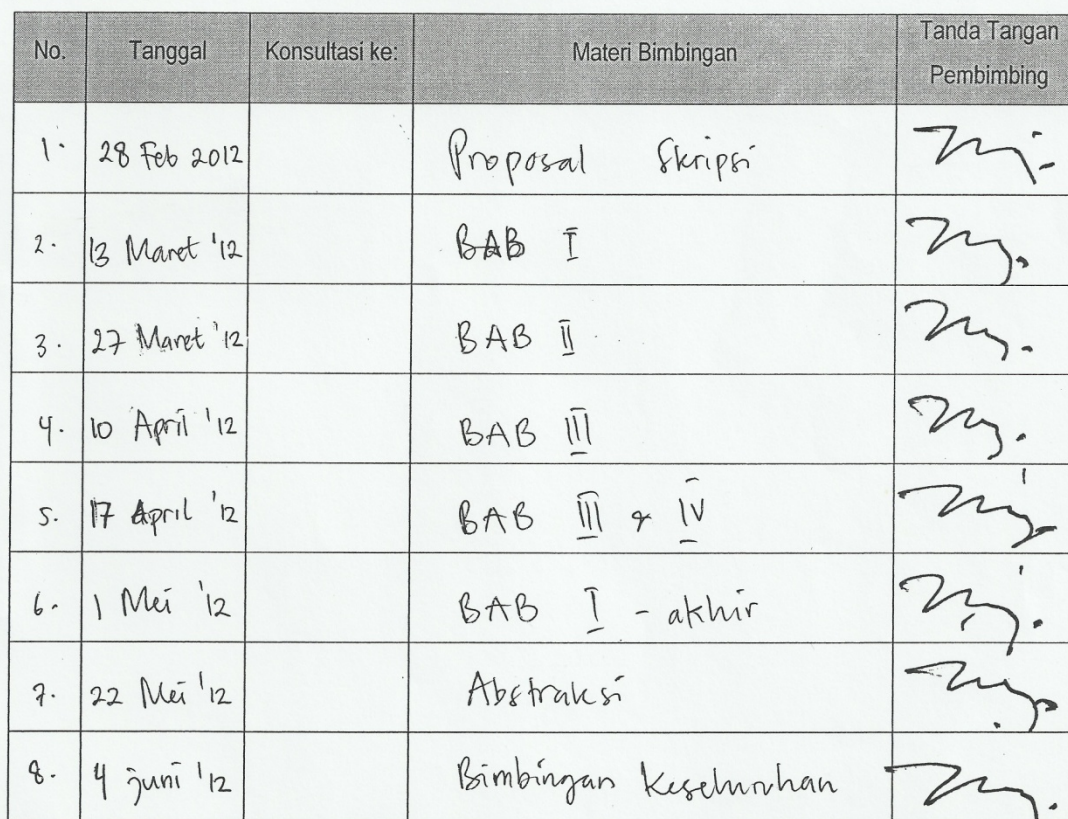 No. Tanggal Konsultasi ke: Materi Bimbingan Tanda Tangan Pembimbing
1. 28 Feb 2012 Proposal Skripsi
2. 13 Maret '12 BAB I
3. 27 Maret '12 BAB II
4. 10 April '12 BAB III
5. 17 April '12 BAB III & IV
6. 1 Mei '12 BAB I - akhir
7. 22 Mei '12 Abstraksi
8. 4 juni '12 Bimbingan Keseluruhan